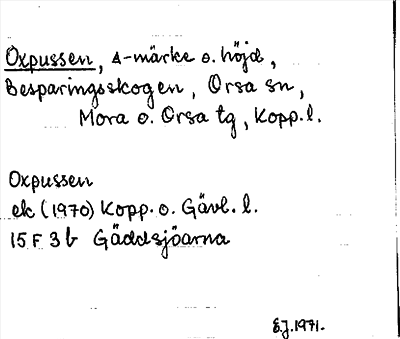 Oxpussen, Δ-märke o. höjd,
Besparingsskogen, Orsa sn,
Mora o. Orsa tg, Kopp. l.
Oxpussen
ek (1970) Kopp. o. Gävl. l.
15 F 3 b Gäddsjöarna
E.J. 1971.